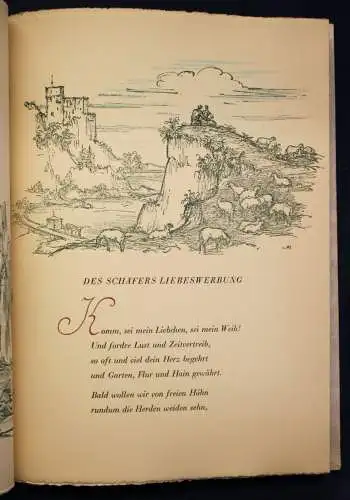 DES SCHÄFERS LIEBESWERBUNG
Komm, sei mein Liebchen, sei mein Weib!
Und fordre Lust und Zeitvertreib,
so oft und viel dein Herz begehrt
und Garten, Flur und Hain gewährt.
Bald wollen wir von freien Höhn
rundum die Herden weiden sehn,